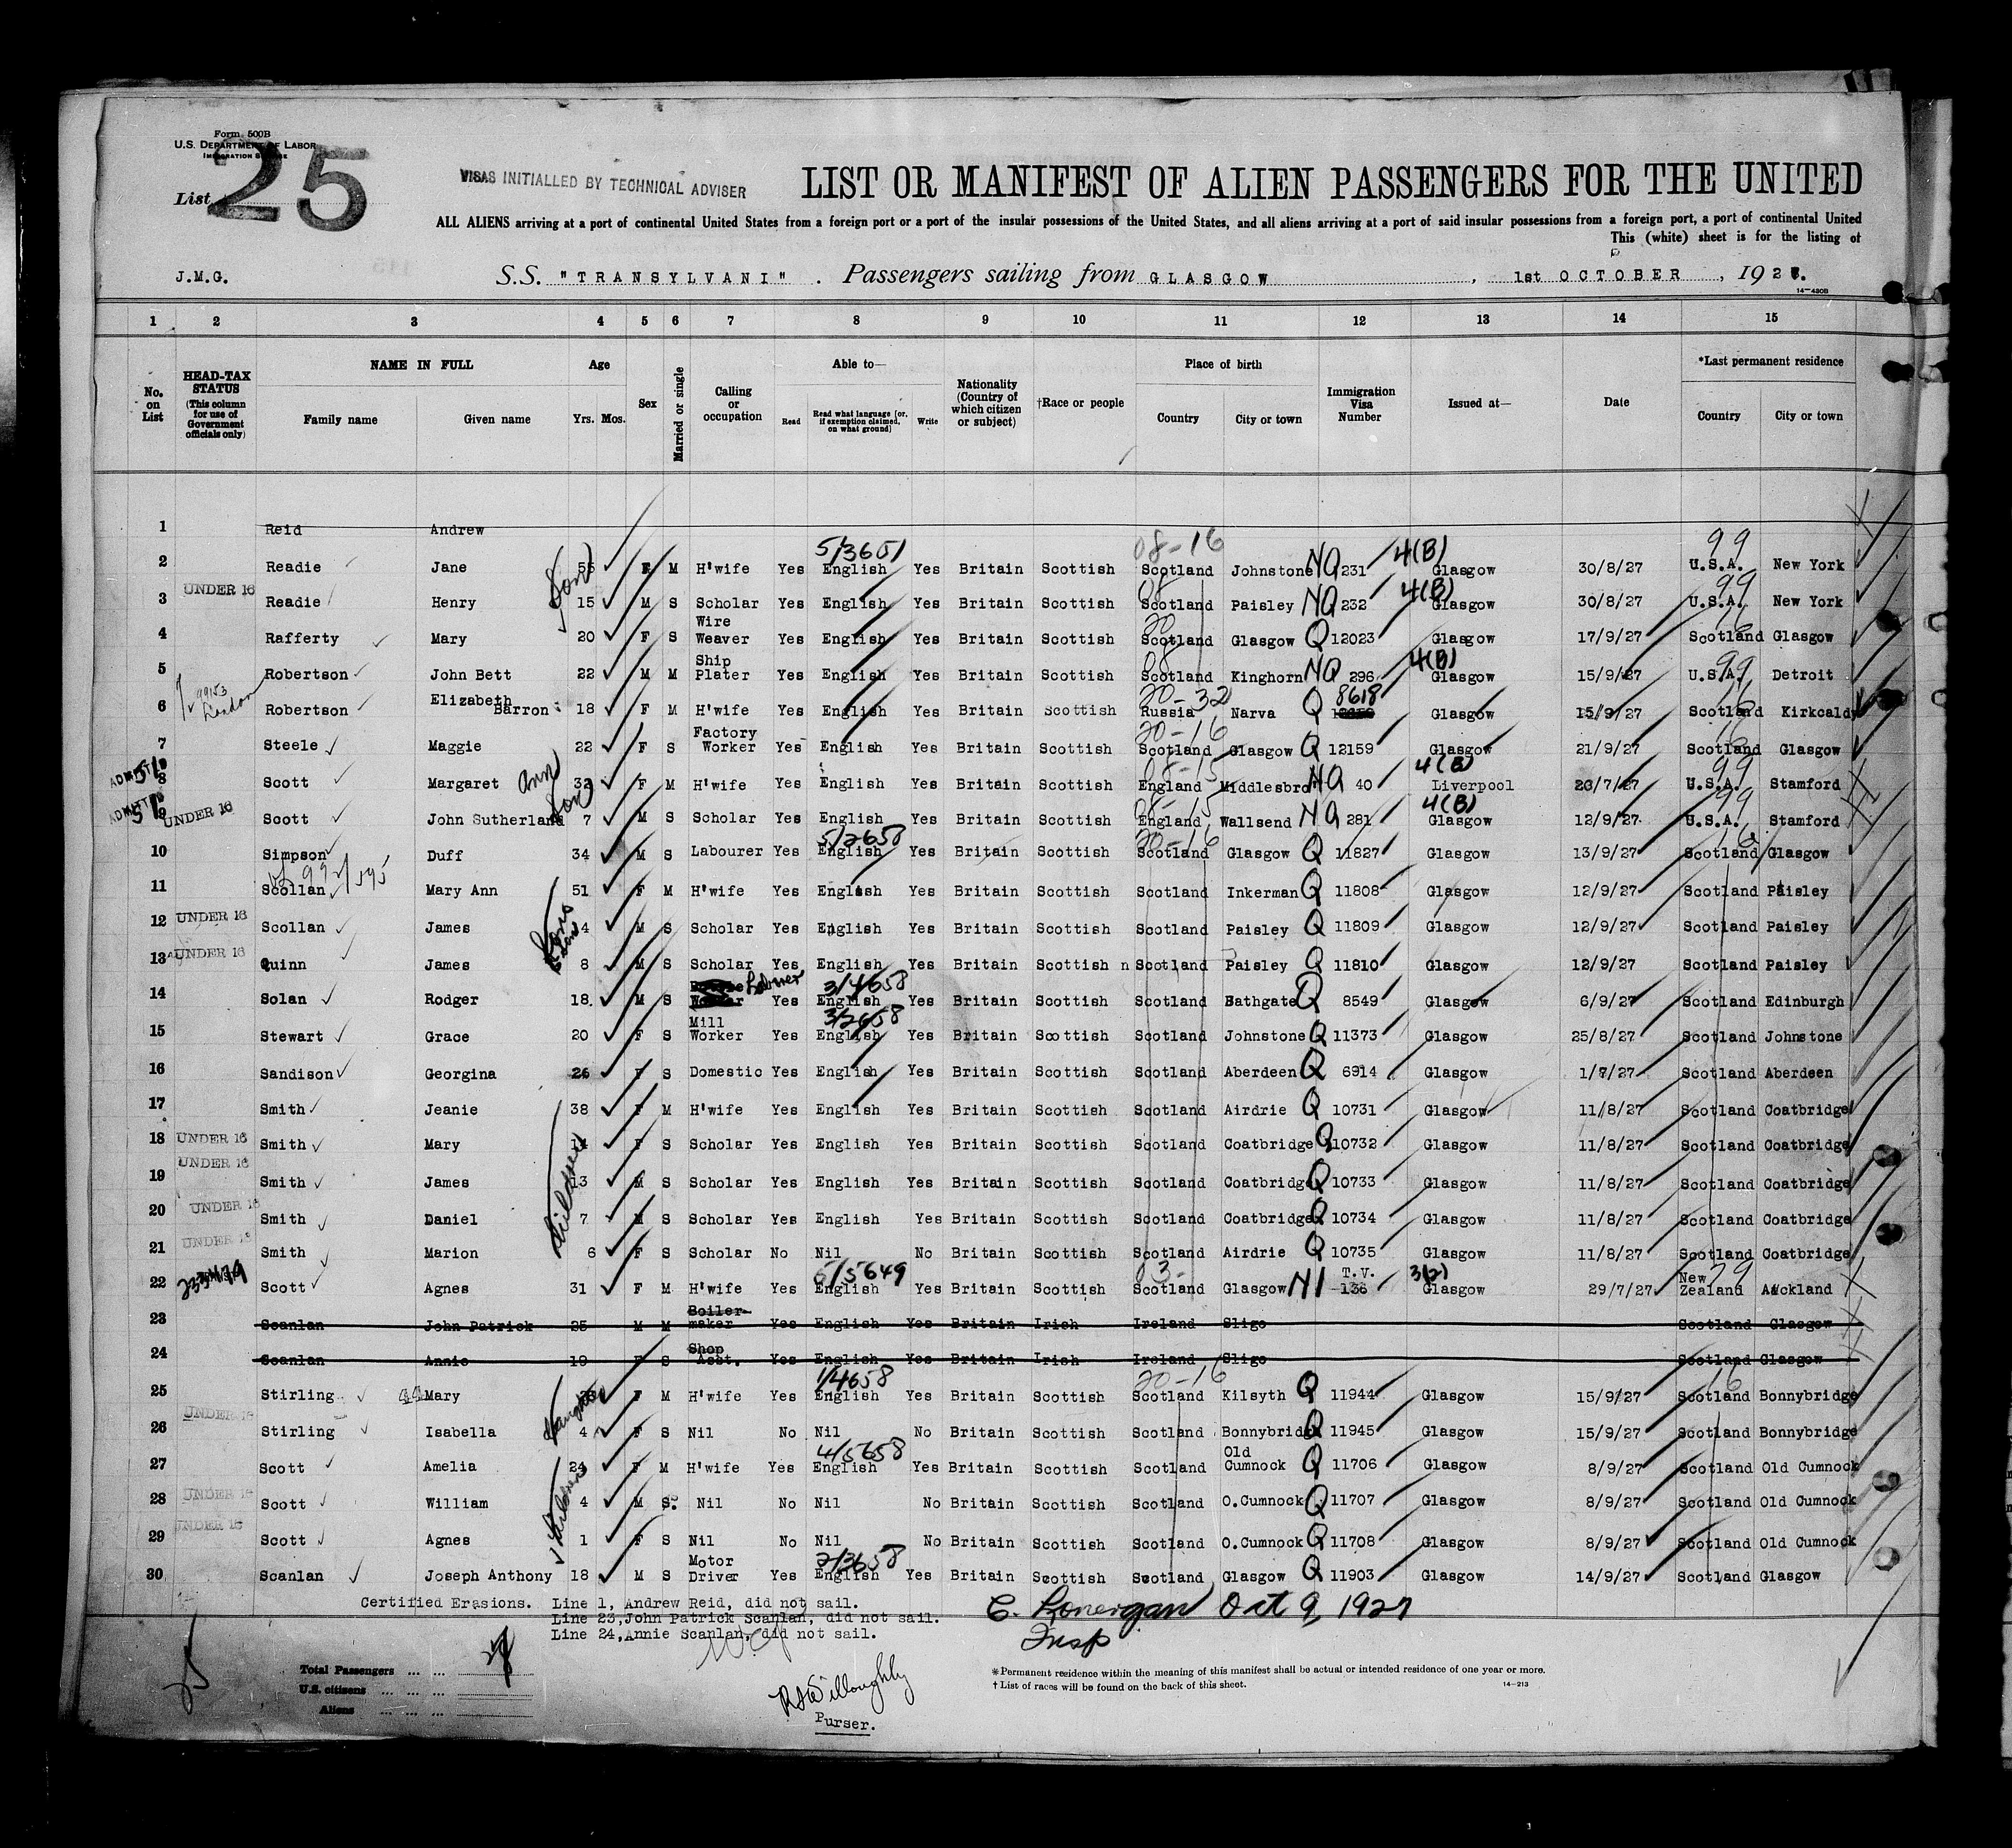 Form 500B
U.S. DEPARTMENT OF LABOR
IMMIGRATION SERVICE
List 25
VISAS INITIALLED BY TECHNICAL ADVISER
LIST OR MANIFEST OF ALIEN PASSENGERS FOR THE UNITED
ALL ALIENS arriving at a port of continental United States from a foreign port or a port of the insular possessions of the United States, and all aliens arriving at a port of said insular possessions from a foreign port, a port of continental United
This (white) sheet is for the listing of
J.M.G. S.S. "TRANSYLVANI" . Passengers sailing from GLASGOW , 1st OCTOBER , 1927.
14-430B
1 2 3 4 5 6 7 8 9 10 11 12 13 14 15
No. on List HEAD-TAX STATUS (This column for use of Government officials only) NAME IN FULL Family name Given name Age Yrs. Mos. Sex Married or single Calling or occupation Able to— Read Read what language (or, if exemption claimed, on what ground) Write Nationality (Country of which citizen or subject) †Race or people Place of birth Country City or town Immigration Visa Number Issued at— Date *Last permanent residence Country City or town
1 Reid Andrew
5/3601 08-16 4(B) 99
2 Readie Jane 55 F M H'wife Yes English Yes Britain Scottish Scotland Johnstone NQ 231 Glasgow 30/8/27 U.S.A. New York
UNDER 16 Son 08 4(B) 99
3 Readie Henry 15 M S Scholar Yes English Yes Britain Scottish Scotland Paisley NQ 232 Glasgow 30/8/27 U.S.A. New York
4 Rafferty Mary 20 F S Wire Weaver Yes English Yes Britain Scottish Scotland Glasgow Q 12023 Glasgow 17/9/27 Scotland Glasgow
08 4(B) 99
5 Robertson John Bett 22 M M Ship Plater Yes English Yes Britain Scottish Scotland Kinghorn NQ 296 Glasgow 15/9/27 U.S.A. Detroit
20-32 8618
6 Robertson Elizabeth Barron 18 F M H'wife Yes English Yes Britain Scottish Russia Narva Q Glasgow 15/9/27 Scotland Kirkcaldy
20-16
7 Steele Maggie 22 F S Factory Worker Yes English Yes Britain Scottish Scotland Glasgow Q 12159 Glasgow 21/9/27 Scotland Glasgow
ADMITTED 08-15 4(B) 99
8 Scott Margaret Ann 32 F M H'wife Yes English Yes Britain Scottish England Middlesbro NQ 40 Liverpool 20/7/27 U.S.A. Stamford
ADMITTED UNDER 16 Son 08-15 4(B) 99
9 Scott John Sutherland 7 M S Scholar Yes English Yes Britain Scottish England Wallsend NQ 281 Glasgow 12/9/27 U.S.A. Stamford
5/2658 20-16
10 Simpson Duff 34 M S Labourer Yes English Yes Britain Scottish Scotland Glasgow Q 11827 Glasgow 13/9/27 Scotland Glasgow
11 Scollan Mary Ann 51 F M H'wife Yes English Yes Britain Scottish Scotland Inkerman Q 11808 Glasgow 12/9/27 Scotland Paisley
12 UNDER 16 Scollan James 4 M S Scholar Yes English Yes Britain Scottish Scotland Paisley Q 11809 Glasgow 12/9/27 Scotland Paisley
13 UNDER 16 Quinn James 8 M S Scholar Yes English Yes Britain Scottish n Scotland Paisley Q 11810 Glasgow 12/9/27 Scotland Paisley
Laborer 3/4658
14 Solan Rodger 18 M S Yes English Yes Britain Scottish Scotland Bathgate Q 8549 Glasgow 6/9/27 Scotland Edinburgh
3/2658
15 Stewart Grace 20 F S Mill Worker Yes English Yes Britain Scottish Scotland Johnstone Q 11373 Glasgow 25/8/27 Scotland Johnstone
16 Sandison Georgina 26 F S Domestic Yes English Yes Britain Scottish Scotland Aberdeen Q 6914 Glasgow 1/7/27 Scotland Aberdeen
17 Smith Jeanie 38 F M H'wife Yes English Yes Britain Scottish Scotland Airdrie Q 10731 Glasgow 11/8/27 Scotland Coatbridge
18 UNDER 16 Smith Mary 14 F S Scholar Yes English Yes Britain Scottish Scotland Coatbridge Q 10732 Glasgow 11/8/27 Scotland Coatbridge
19 UNDER 16 Smith James 13 M S Scholar Yes English Yes Britain Scottish Scotland Coatbridge Q 10733 Glasgow 11/8/27 Scotland Coatbridge
Children
20 UNDER 16 Smith Daniel 7 M S Scholar Yes English Yes Britain Scottish Scotland Coatbridge Q 10734 Glasgow 11/8/27 Scotland Coatbridge
21 UNDER 16 Smith Marion 6 F S Scholar No Nil No Britain Scottish Scotland Airdrie Q 10735 Glasgow 11/8/27 Scotland Coatbridge
5/5649 03- 3(2) 79
22 Scott Agnes 31 F M H'wife Yes English Yes Britain Scottish Scotland Glasgow NI T.V. 136 Glasgow 29/7/27 New Zealand Auckland
23 Scanlan John Patrick 25 M M Boiler-maker Yes English Yes Britain Irish Ireland Sligo Scotland Glasgow
24 Scanlan Annie 19 F S Shop Asst. Yes English Yes Britain Irish Ireland Sligo Scotland Glasgow
1/4658 20-16 16
25 Stirling Mary F M H'wife Yes English Yes Britain Scottish Scotland Kilsyth Q 11944 Glasgow 15/9/27 Scotland Bonnybridge
Daughter
26 UNDER 16 Stirling Isabella 4 F S Nil No Nil No Britain Scottish Scotland Bonnybridge Q 11945 Glasgow 15/9/27 Scotland Bonnybridge
4/5658
27 Scott Amelia 24 F M H'wife Yes English Yes Britain Scottish Scotland Old Cumnock Q 11706 Glasgow 8/9/27 Scotland Old Cumnock
Children
28 UNDER 16 Scott William 4 M S. Nil No Nil No Britain Scottish Scotland O.Cumnock Q 11707 Glasgow 8/9/27 Scotland Old Cumnock
29 UNDER 16 Scott Agnes 1 F S Nil No Nil No Britain Scottish Scotland O.Cumnock Q 11708 Glasgow 8/9/27 Scotland Old Cumnock
2/3658
30 Scanlan Joseph Anthony 18 M S Motor Driver Yes English Yes Britain Scottish Scotland Glasgow Q 11903 Glasgow 14/9/27 Scotland Glasgow
Certified Erasions. Line 1, Andrew Reid, did not sail.
Line 23, John Patrick Scanlan, did not sail.
Line 24, Annie Scanlan, did not sail.
C. Lonergan Oct 9, 1927
Insp
Total Passengers ... ...
U.S. citizens ... ... ...
Aliens ... ... ...
RS Willoughly
Purser.
*Permanent residence within the meaning of this manifest shall be actual or intended residence of one year or more.
† List of races will be found on the back of this sheet.
14-213